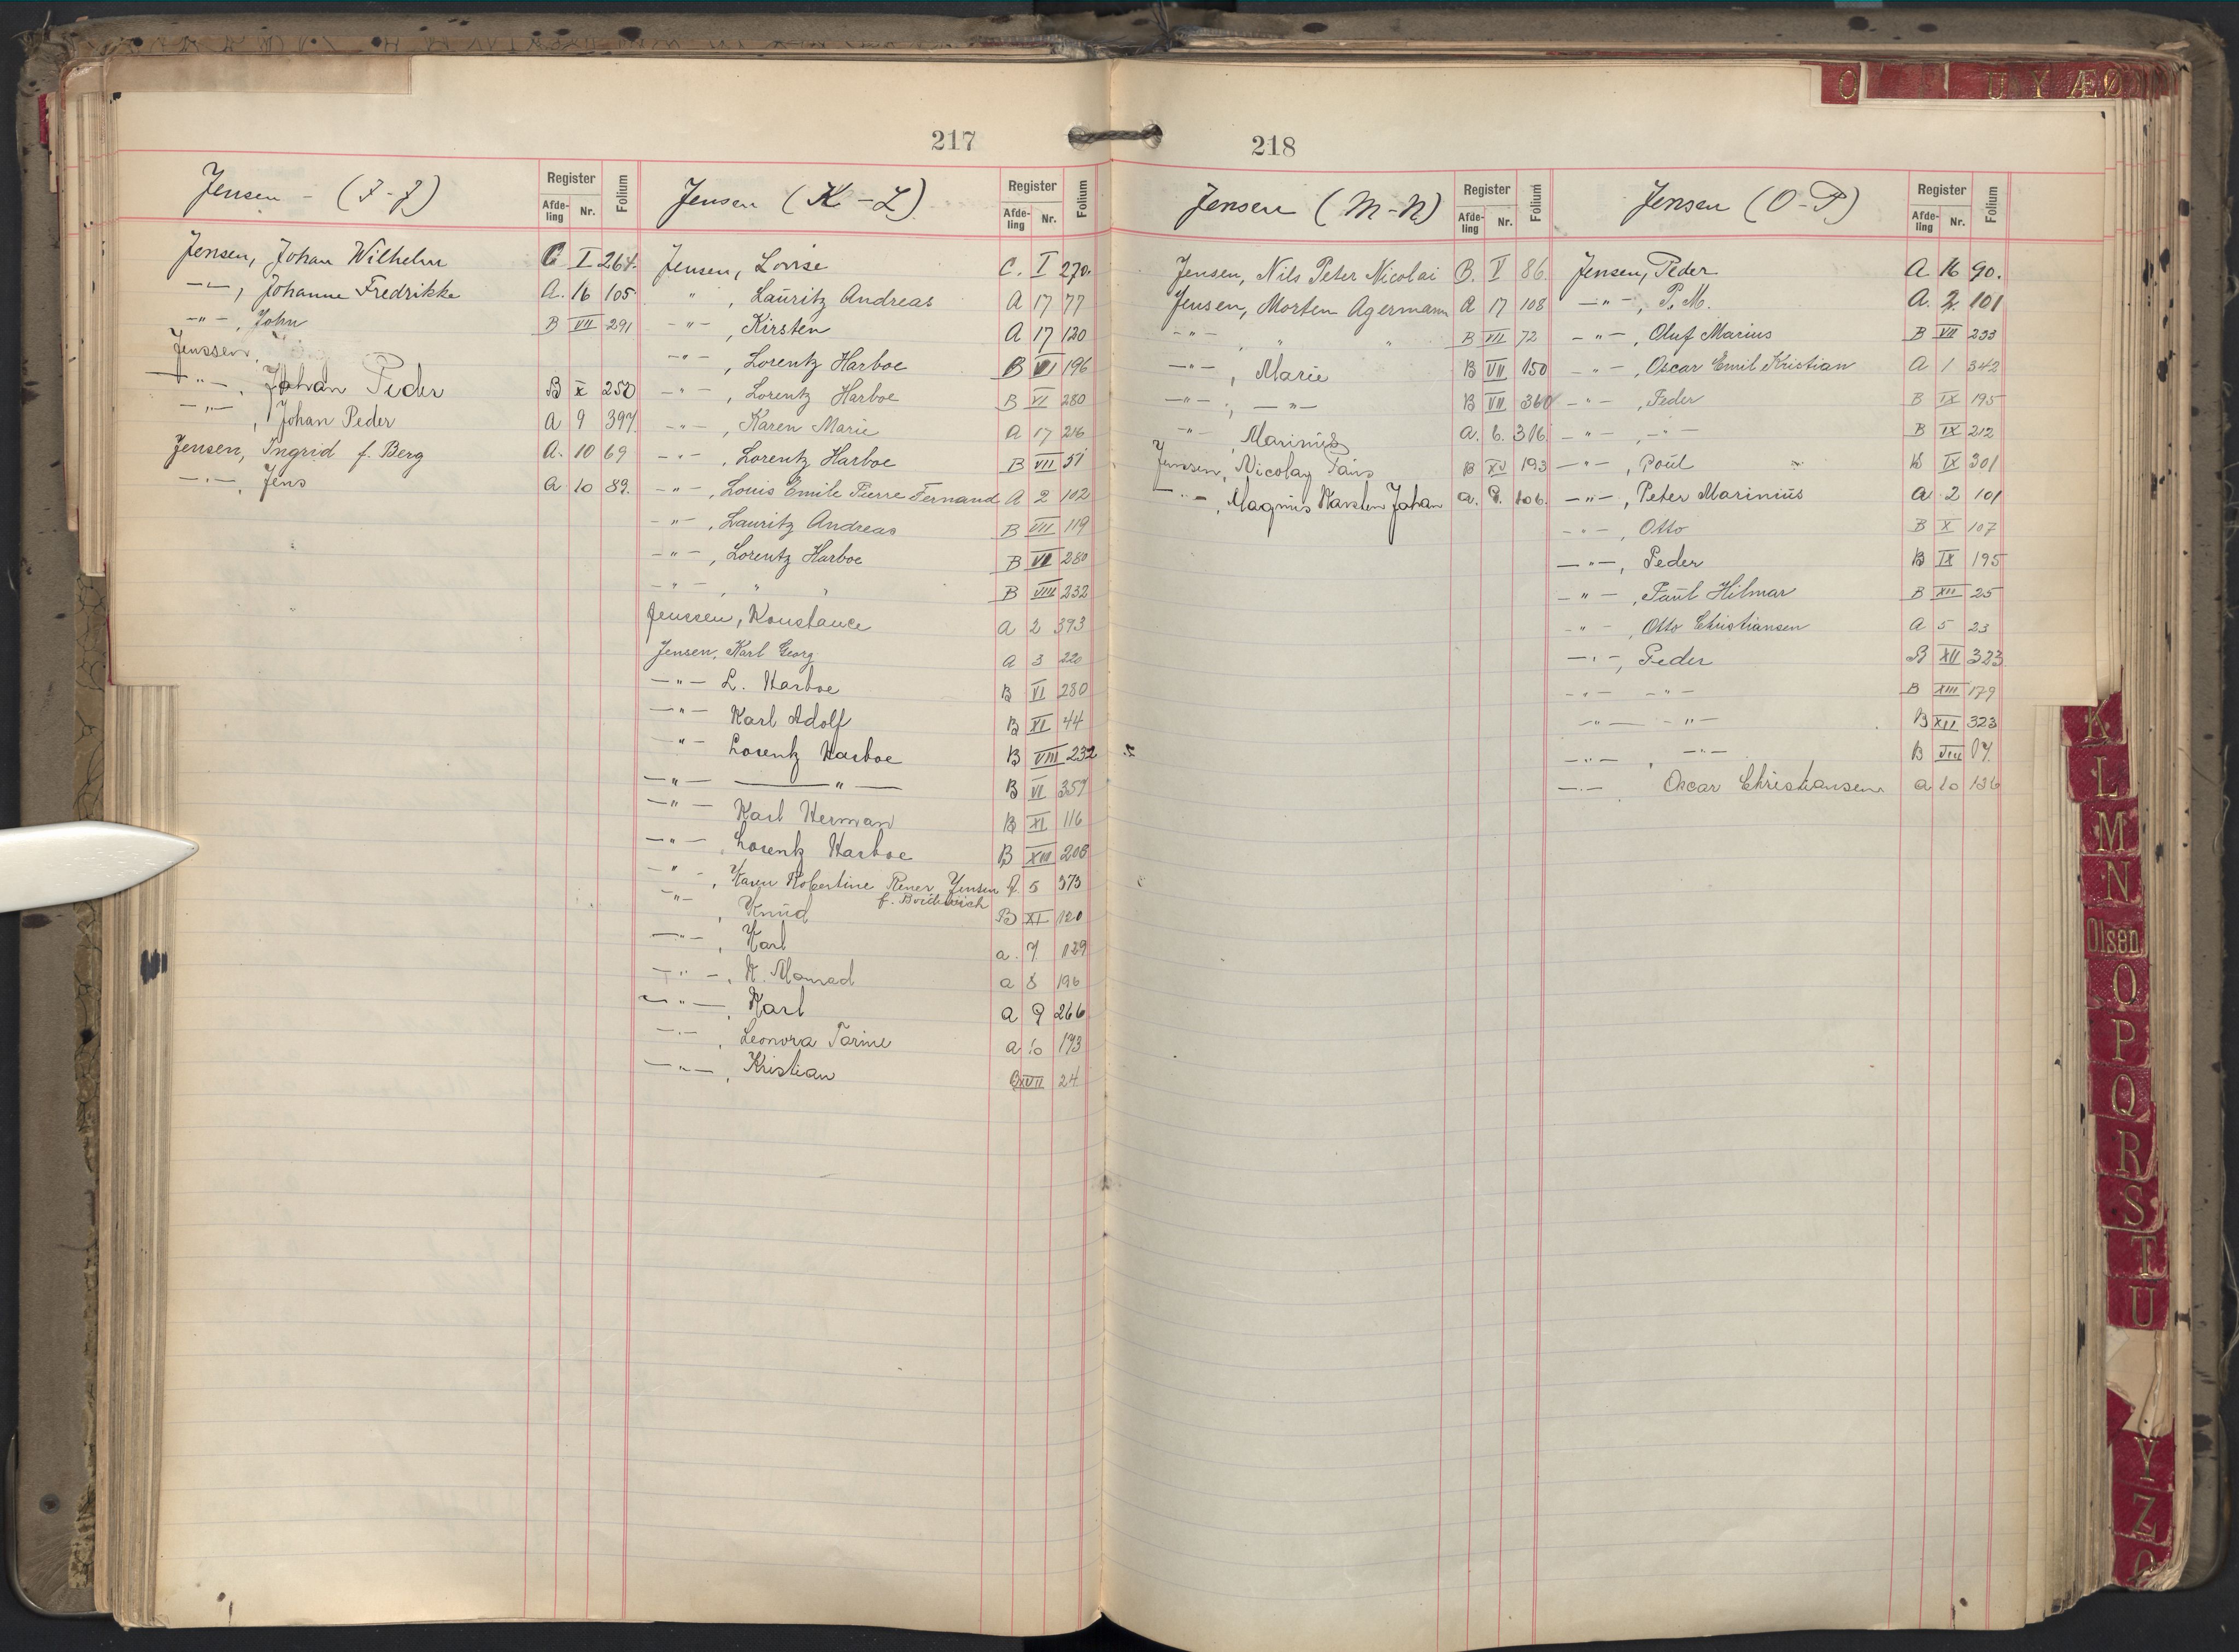 217
Jensen - (I-J)
Register
Afde-
ling
Nr.
Folium
Jensen, Johan Wilhelm C I 264.
-"-, Johanne Fredrikke A. 16 105
-"-, John B VII 291
Jenssen,
-"-, Johan Peder B X 250
-"-, Johan Peder A 9 397
Jensen, Ingrid f. Berg A. 10 69
-"-, Jens A 10 89.
Jensen (K-L)
Register
Afde-
ling
Nr.
Folium
Jensen, Lovise C. I 270.
" , Lauritz Andreas A 17 77
-"-, Kirsten A 17 120
-"-, Lorentz Harboe B VI 196
-"-, Lorentz Harboe B VI 280
-"-, Karen Marie A 17 216
-"-, Lorentz Harboe B VII 51
-"-, Louis Emile Pierre Fernand A 2 102
-"-, Lauritz Andreas B VII 119
-"-, Lorentz Harboe B VI 280
-"-, " " B VIII 232
Jenssen, Konstance A 2 393
Jensen, Karl Georg A 3 220
-"- L. Harboe B VI 280
-"- Karl Adolf B XI 44
-"- Lorentz Harboe B VIII 232
-"- -"- B VI 357
-"- Karl Herman B XI 116
-"-, Lorentz Harboe B XIII 208
-"-, Karen Robertine Rener Jensen A. 5 373
f.
-"-, Knud B XI 120
-"-, Karl a. 7 129
-"-, K. Monrad a 8 196
-"-, Karl a 9 266
-"-, Leonora Tarine a 10 173
-"-, Kristian B XVII 24
218
Jensen (M-N)
Register
Afde-
ling
Nr.
Folium
Jensen, Nils Peter Nicolai B. V 86
Jensen, Morten Agermann A 17 108
-"-, " " B VII 72
-"-, Marie B VII 150
-"-, -"- B VII 360
-"-, Marinus a. 6. 316
Jenssen, Nicolay B XV 193
-"-, Magnus Karsten Johan a. 9. 106.
Jensen (O-P)
Register
Afde-
ling
Nr.
Folium
Jensen, Peder A 16 90.
-"-, P. M. A. 2. 101
-"-, Oluf Marius B VII 233
-"-, Oscar Emil Kristian A 1 342
-"-, Peder B IX 195
-"-, -"- B IX 212
-"-, Poul B IX 301
-"-, Peter Marinius A 2 101
-"-, Otto B X 107
-"-, Peder B IX 195
-"-, Paul Hilmar B XII 25
-"-, Otto Christiansen A 5 23
-"-, Peder B XII 323
-"- -"- B XIII 179
-"- -"- B XII 323
-"-, -"- B VIII
-"-, Oscar Christiansen a 10 136
O
U
Y
Æ
Ø
K
L
M
N
Olsen
O
P
Q
R
S
T
U
Y
Z